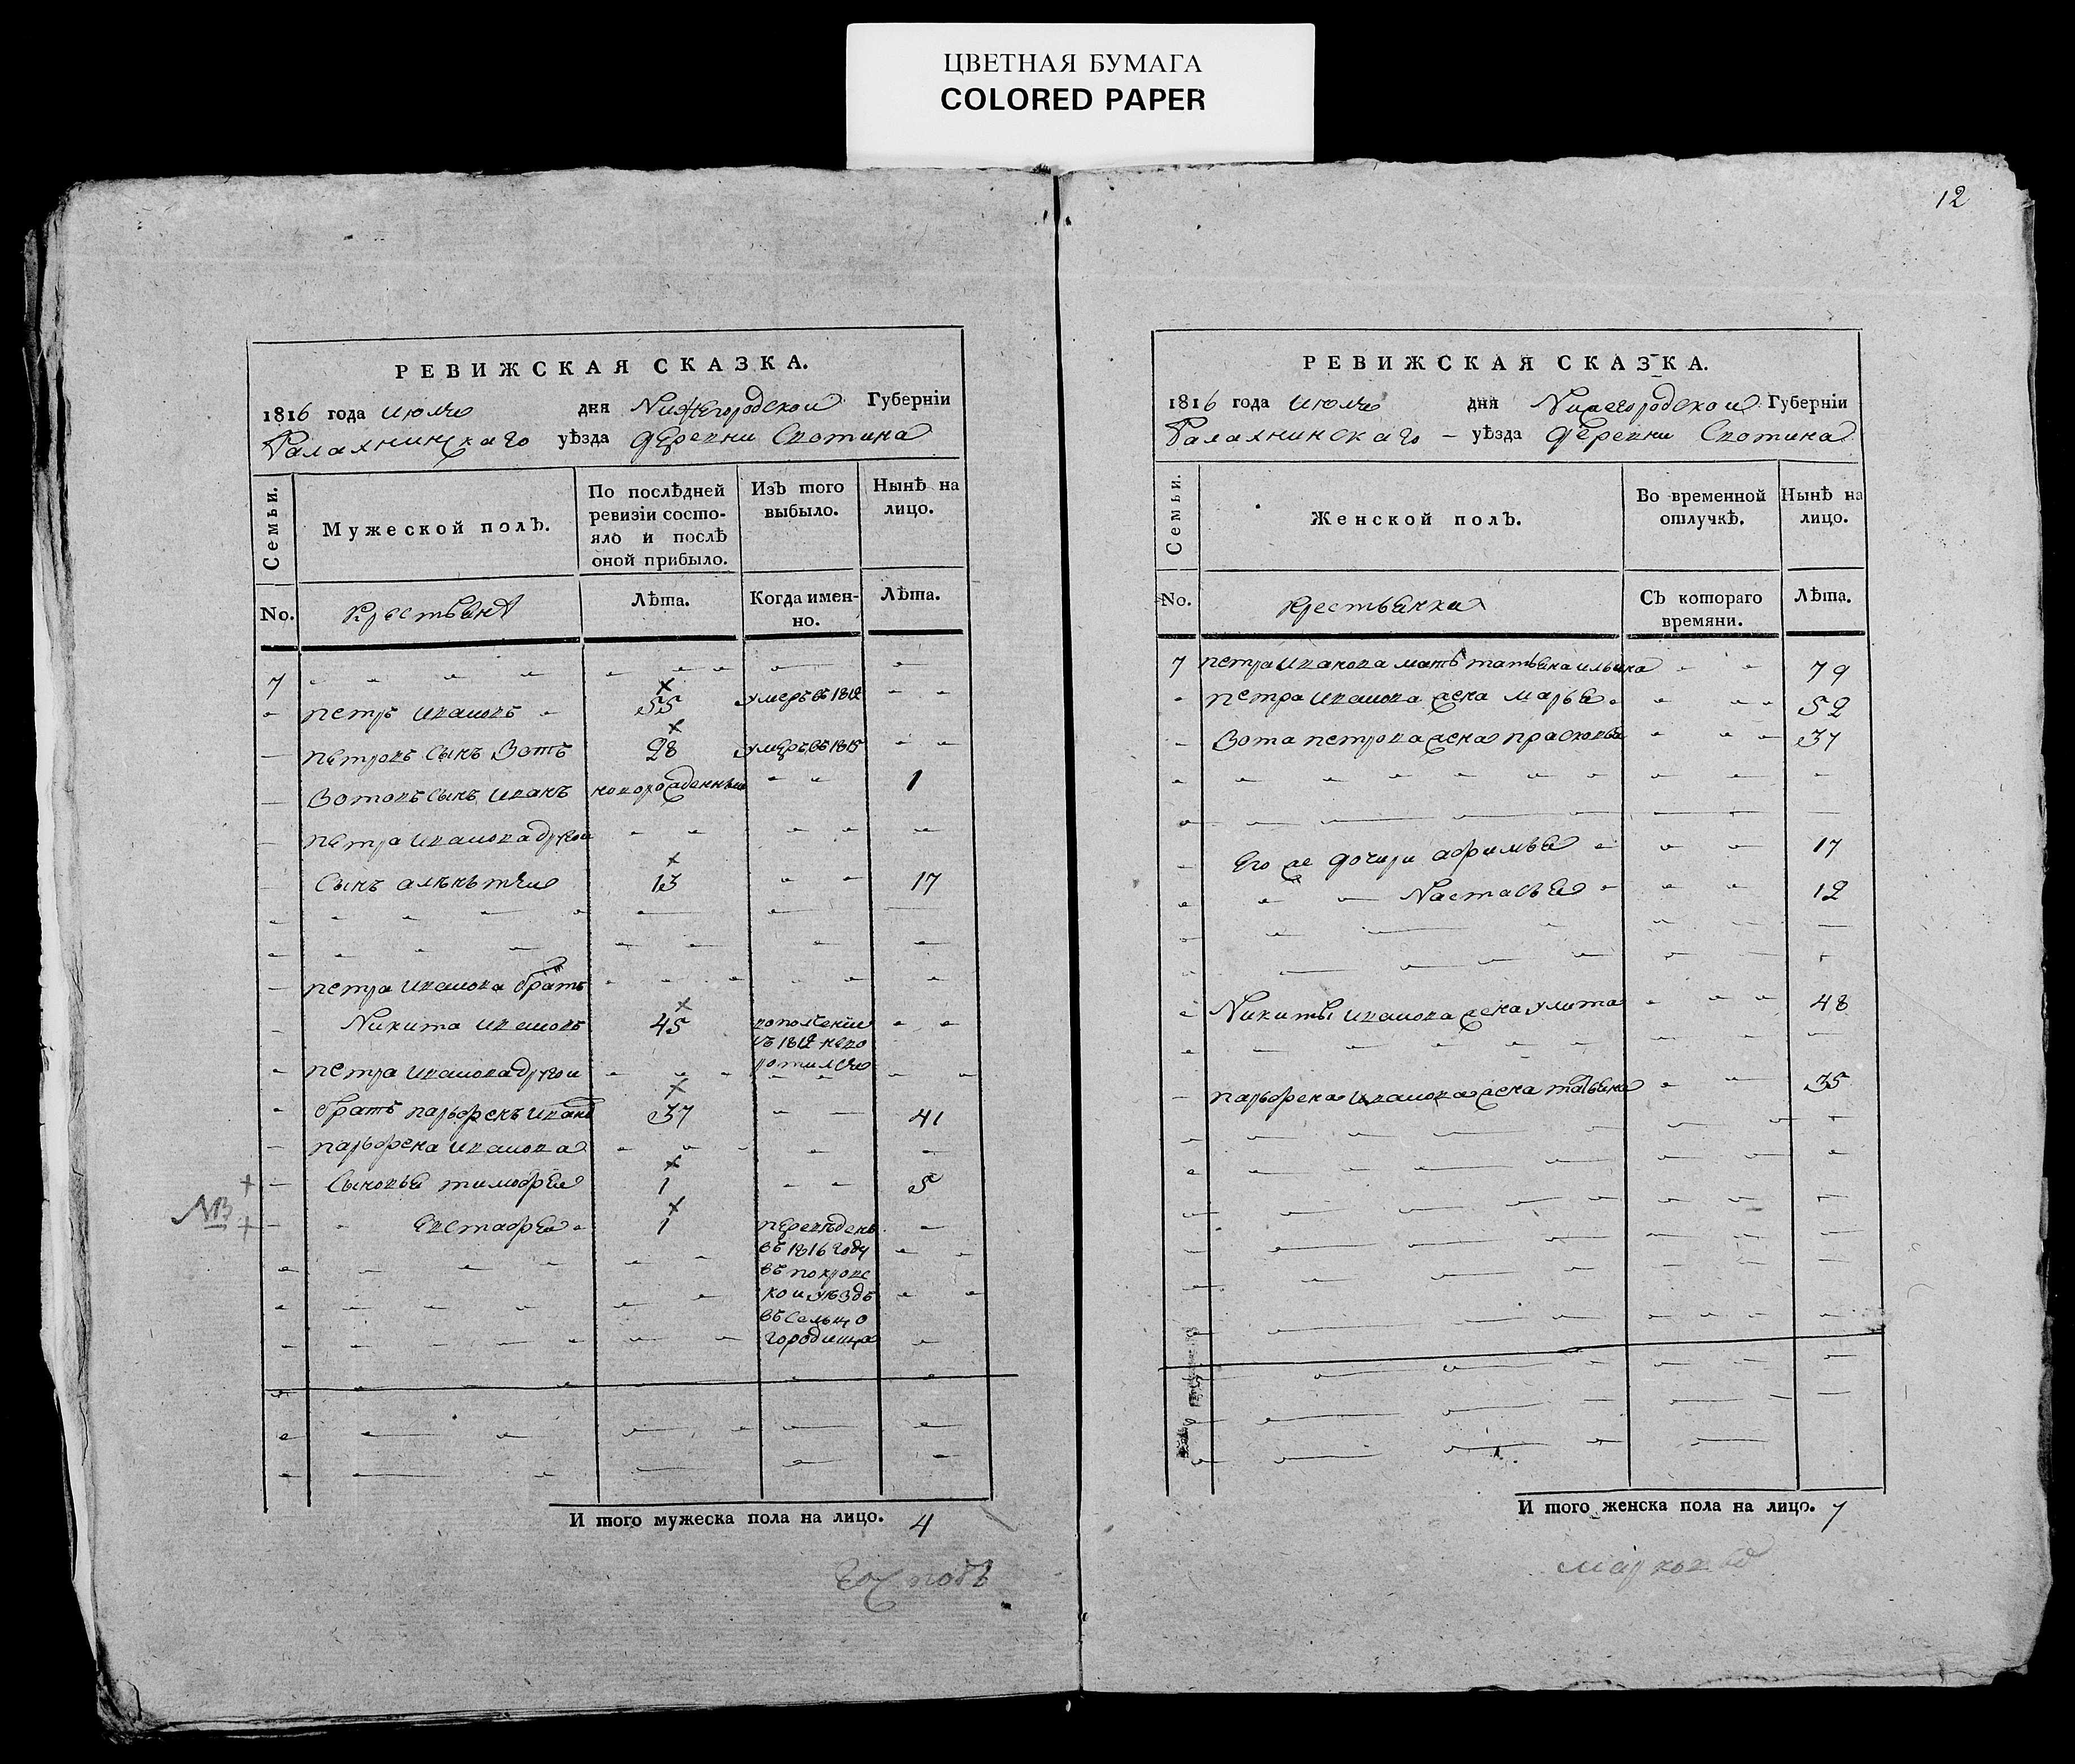 ЦВЕТНАЯ БУМАГА
COLORED PAPER
12
РЕВИЖСКАЯ СКАЗКА.
1816 года июля дня Нижегородской Губернїи
Балахнинскаго уѣзда деревни Скотина
Семьи.
Мужеской полъ.
По послѣдней ревизїи состо-
яло и послѣ оной прибыло.
Изъ того выбыло.
Нынѣ на лицо.
No. Крестьянѣ Лѣта. Когда имен-но. Лѣта.
7
петръ ивановъ 55 умеръ въ 1812
петровъ сынъ Вотъ 28 умеръ въ 1815
Вотовъ сынъ иванъ новорожденный 1
петра иванова другои
сынъ алѣксѣи 13 17
петра иванова братъ
Никита ивановъ 45 вополчении
въ 1812 нево
ротился
петра иванова другои
братъ парфенъ иванъ 37 41
парфена иванова
сыновья тимофеи 1 5
NB евстафеи 1 переведенъ
въ 1816 году
въ покровс
кои уѣздъ
въ сельцо
городища
И того мужеска пола на лицо. 4
господъ
РЕВИЖСКАЯ СКАЗКА.
1816 года июля дня Нижегородской Губернїи
Балахнинскаго уѣзда деревни Скотина
Семьи.
Женской полъ.
Во временной отлучкѣ.
Нынѣ на лицо.
No. крестьянки Съ котораго времяни. Лѣта.
7 петра иванова мать татьяна ильина 79
петра иванова жена марья 52
Вота петрова жена прасковья 37
Его же дочери афимья 17
Настасья 12
Никиты иванова жена улита 48
парфена иванова жена татьяна 35
И того женска пола на лицо. 7